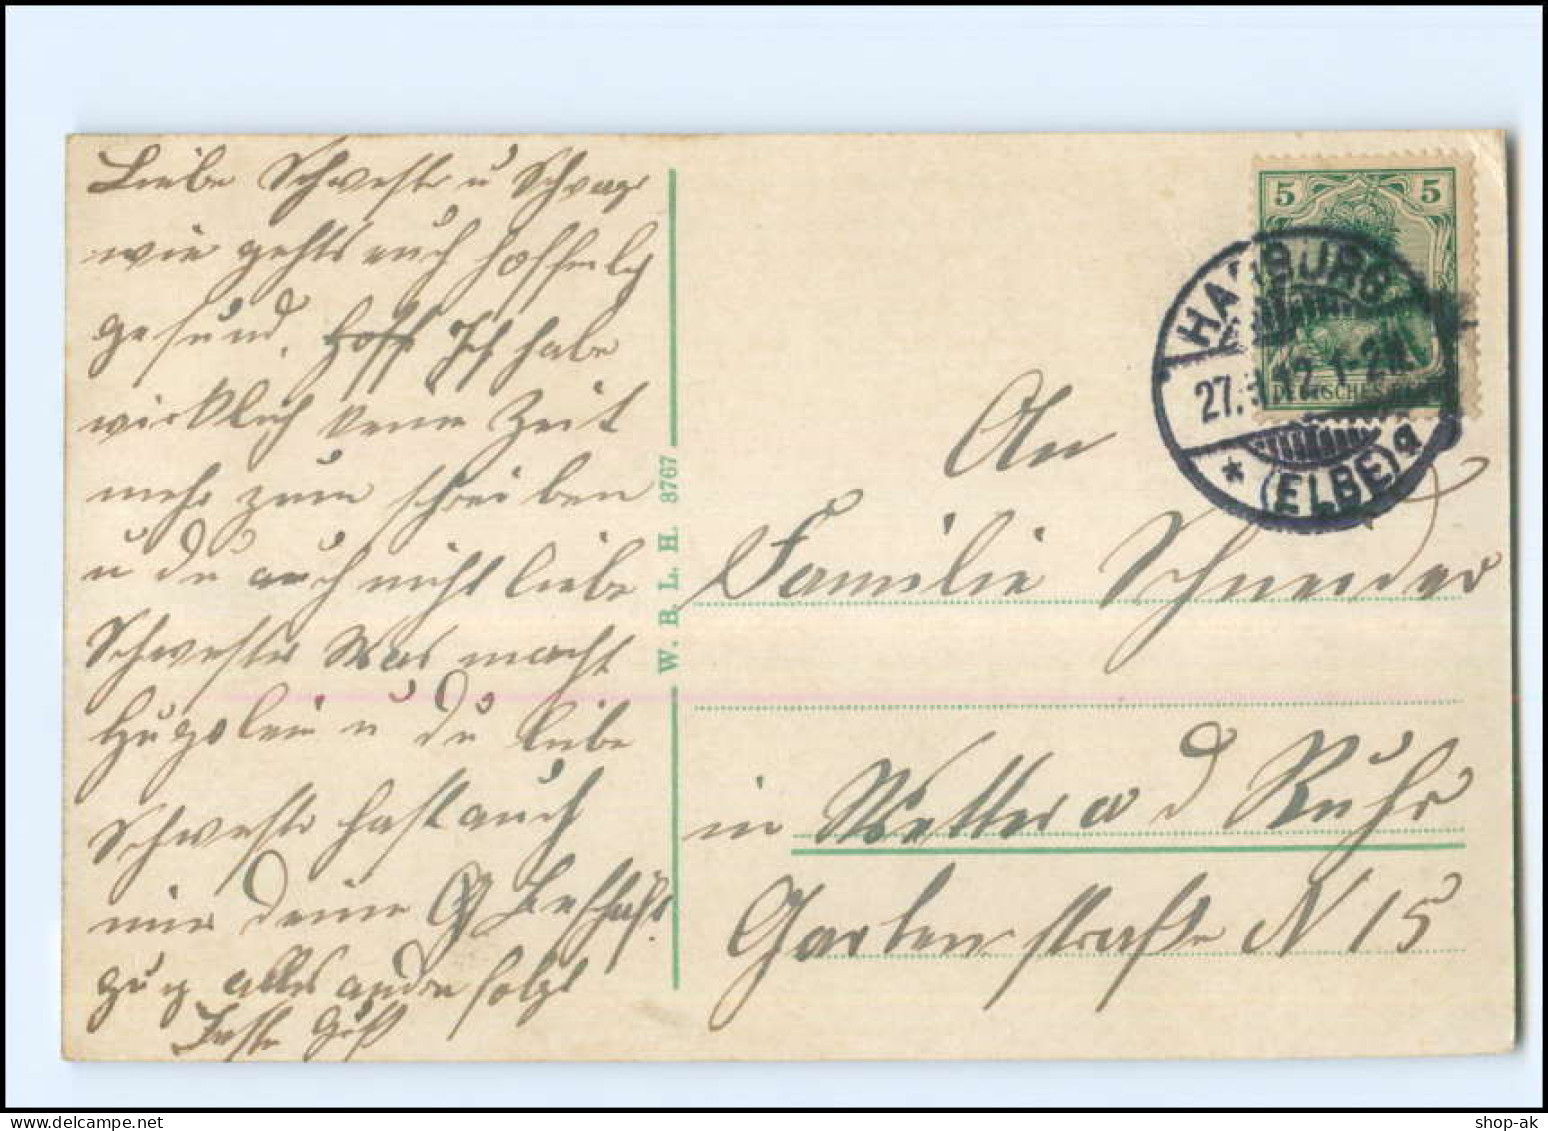 Liebe Schwester u Schwager
wie gehts euch hoffenlich
gesund. Hoff Ich habe
wirklich keine Zeit
mehr zum schreiben
u du auch nicht liebe
Schwester Was macht
Hugolein u du liebe
Schwester hast auch
mir deine
alles andre folgt
W. B. L. H. 3767
5 5
HARBURG
27. 12. 1-2N.
* (ELBE) a
An
Familie Schneider
in Wetter a d Ruhr
Gartenstraße N 15
shop-ak